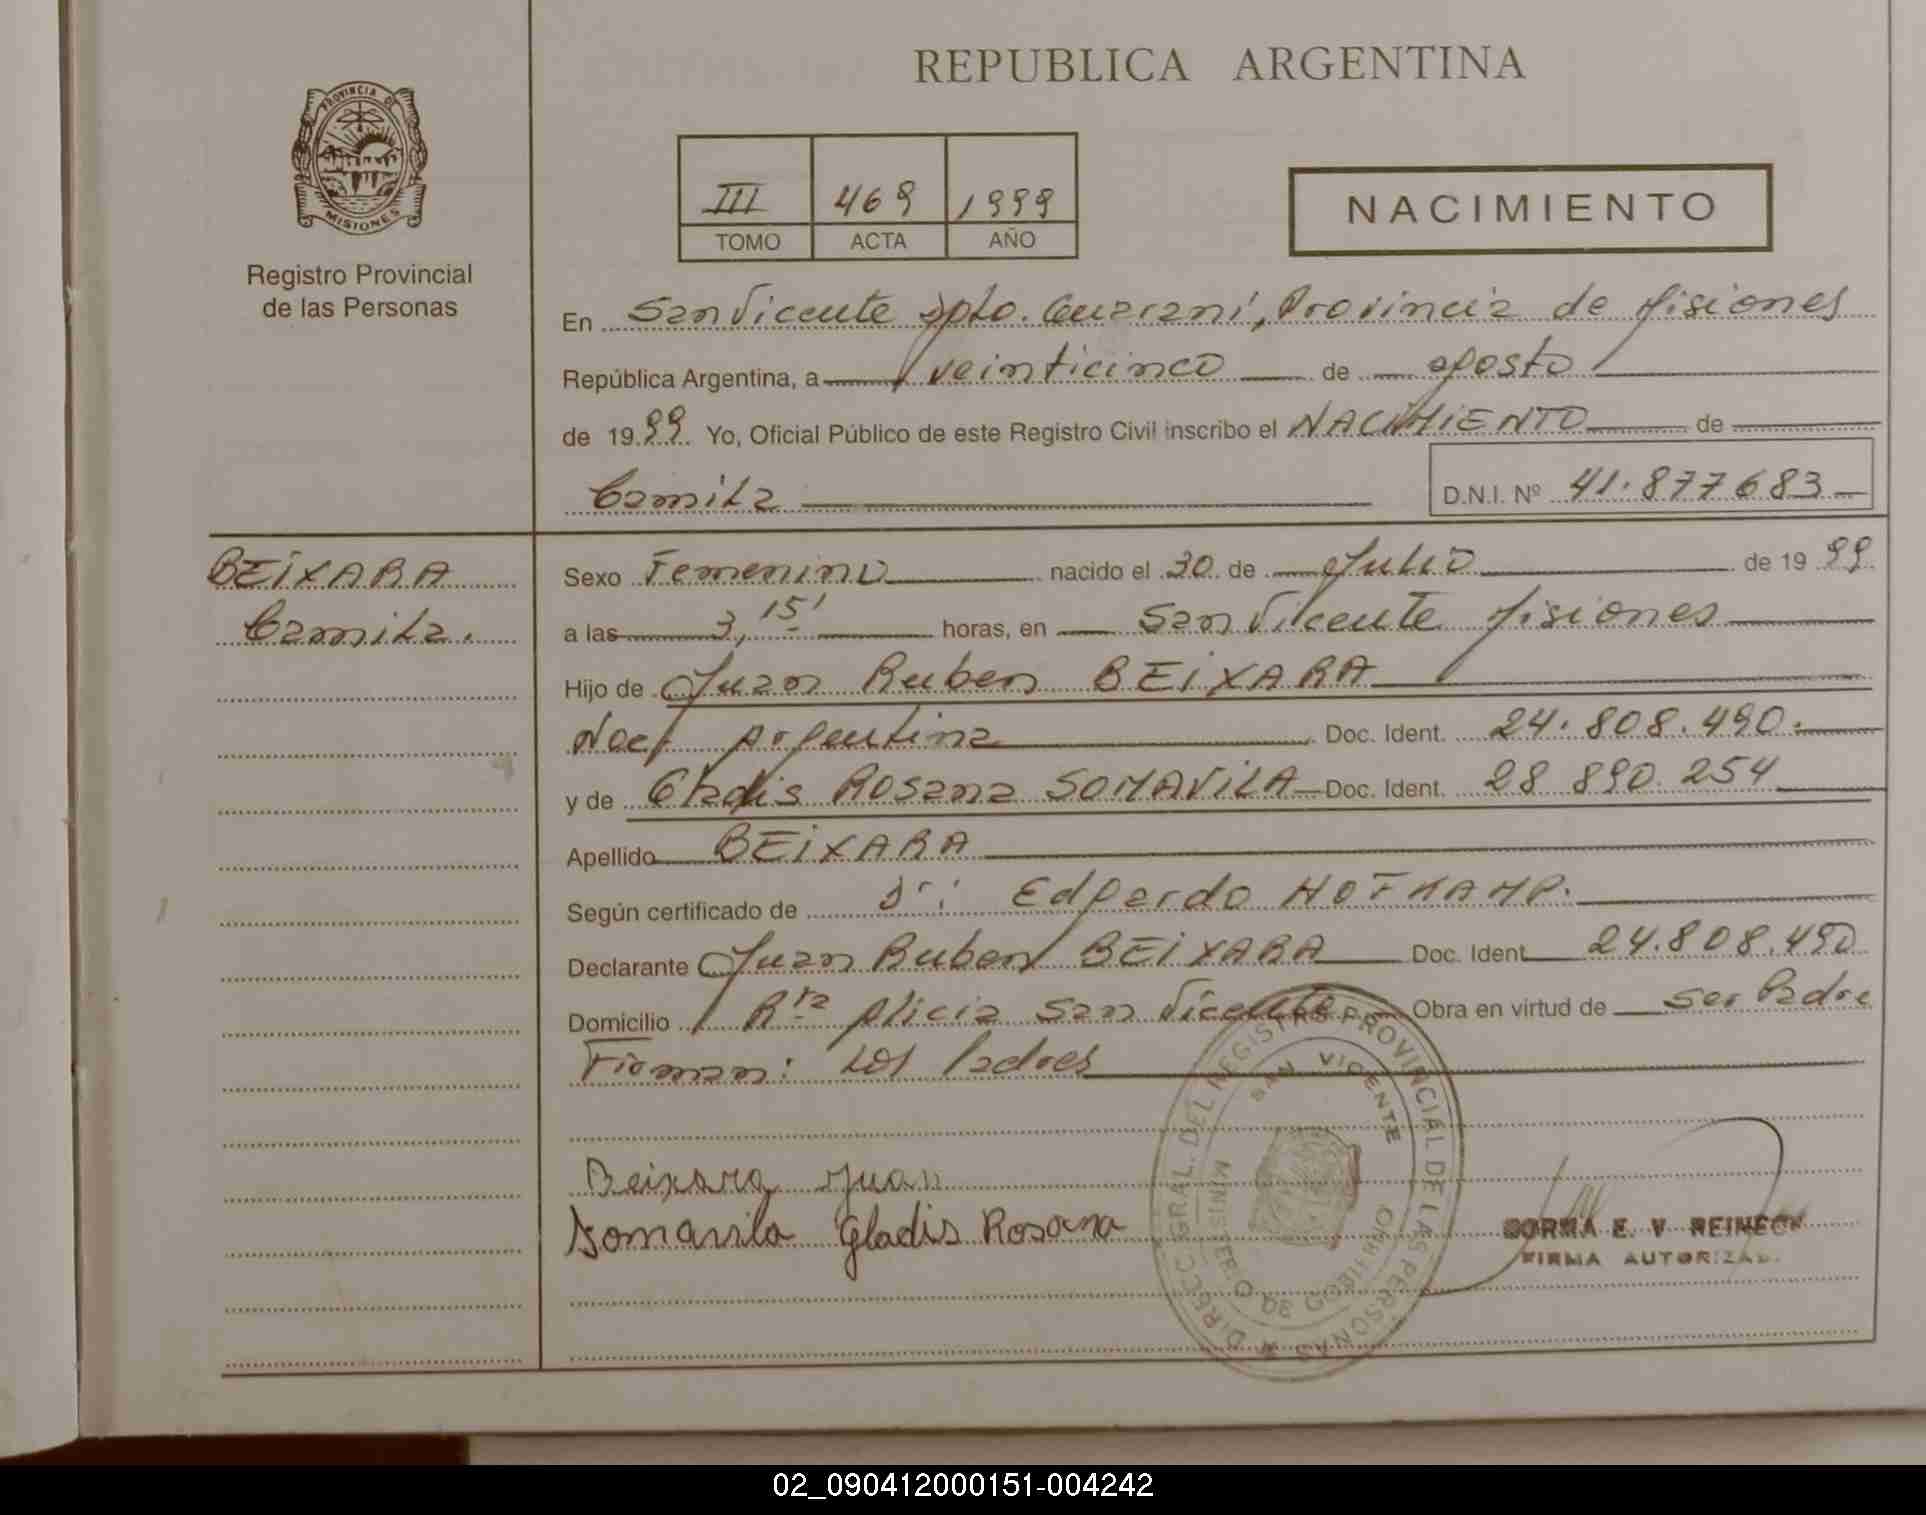 REPUBLICA ARGENTINA
PROVINCIA DE
MISIONES
Registro Provincial
de las Personas
III 469 1999
TOMO ACTA AÑO
NACIMIENTO
En San Vicente Dpto. Guarani, Provincia de Misiones
República Argentina, a veinticinco de agosto
de 1999 Yo, Oficial Público de este Registro Civil inscribo el NACIMIENTO de
Camila D.N.I. Nº 41.877683
BEIXARA
Camila.
Sexo Femenino nacido el 30 de Julio de 1999
a las 3,15' horas, en San Vicente Misiones
Hijo de Juan Ruben BEIXARA
Nac. Argentina Doc. Ident. 24.808.490.
y de Gladis Rosana SOMAVILA Doc. Ident. 28 890.254
Apellido BEIXARA
Según certificado de Dr: Edgardo HOFKAMP.
Declarante Juan Ruben BEIXARA Doc. Ident. 24.808.490
Domicilio Rta Alicia San Vicente Obra en virtud de ser Padre
Firman: Los Padres
Beixara Juan
Somavila Gladis Rosana
DIRECC. GRAL. DEL REGISTRO PROVINCIAL DE LAS PERSONAS
SAN VICENTE
MINISTERIO DE GOBIERNO
NORMA E. V. REINECK
FIRMA AUTORIZAD.
02_090412000151-004242